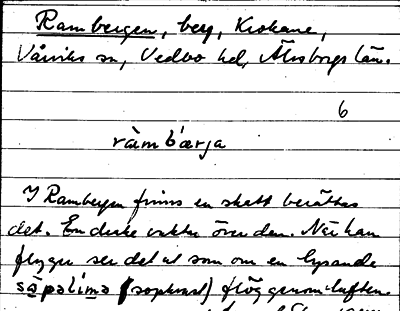 Rambergen, berg, Krokane,
Vårviks sn, Vedbo hd, Älvsborgs län.
6
ràmbærja
I Rambergen finns en skatt berättas
det. En drake vaktar över den. När han
flyger ser det ut som om en lysande
såpalima (sopkvast) flög genom luften.